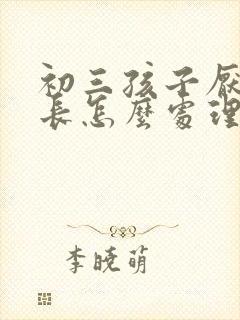 初三孩子厌
长怎麼处理
李晓萌